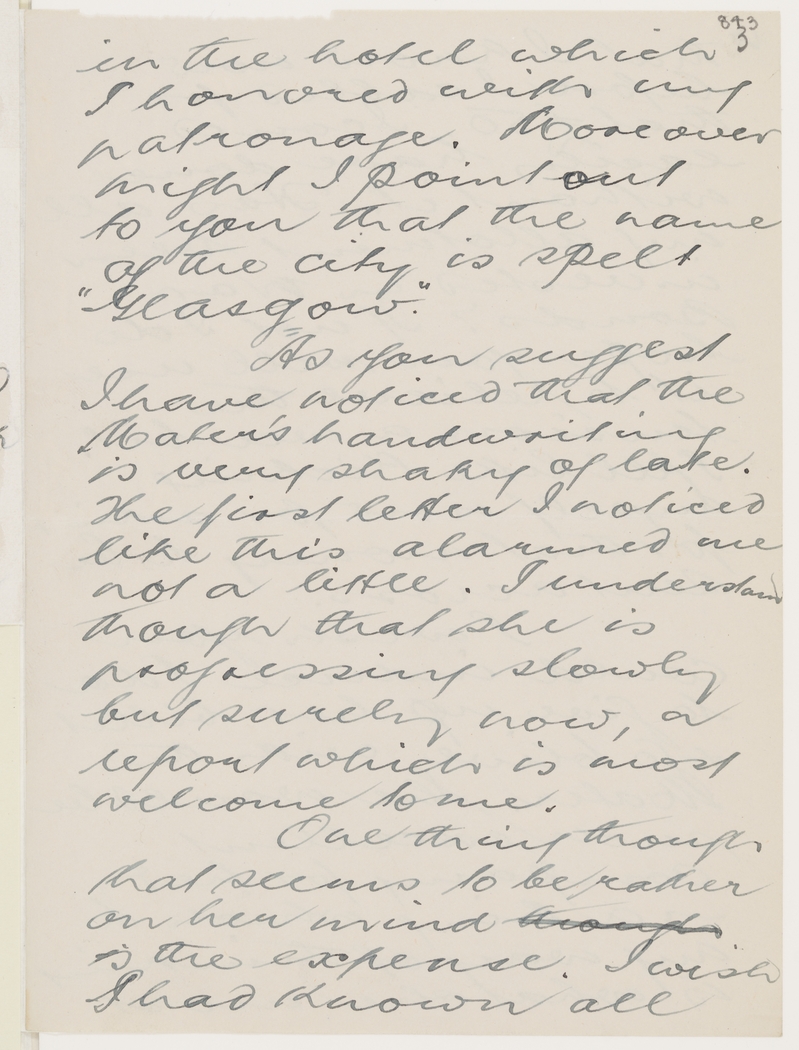 843
3
in the hotel which
I honored with my
patronage. Moreover
might I point out
to you that the name
of the city is spelt
"Glasgow."
As you suggest
I have noticed that the
Mater's handwriting
is very shaky of late.
The first letter I noticed
like this alarmed me
not a little. I understand
though that she is
progressing slowly
but surely now, a
report which is most
welcome to me.
One thing though
that seems to be rather
on her mind though
is the expense. I wish
I had known all